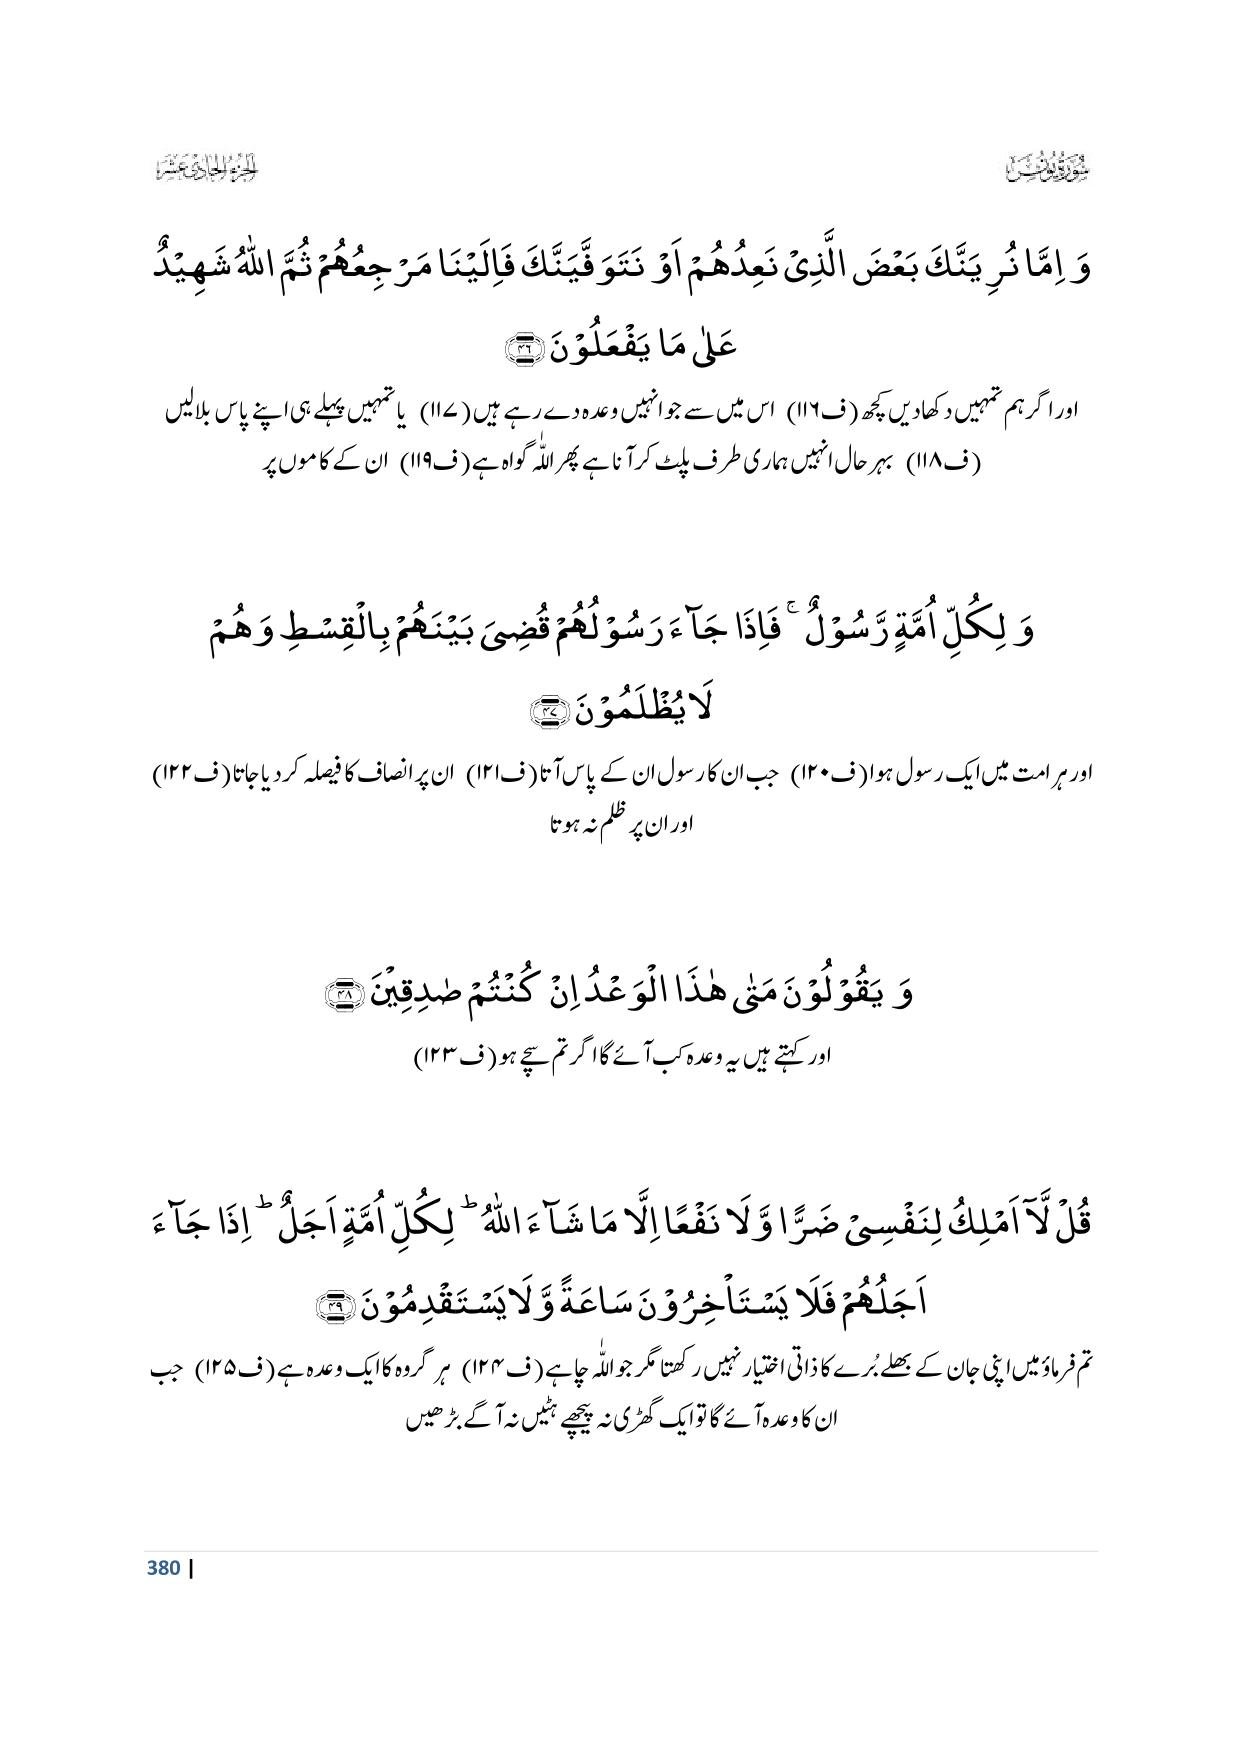 سُوْرَةُ یُوْنُس
الجزء الحادی عشر
وَ اِمَّا نُرِیَنَّكَ بَعْضَ الَّذِیْ نَعِدُهُمْ اَوْ نَتَوَفَّیَنَّكَ فَاِلَیْنَا مَرْجِعُهُمْ ثُمَّ اللّٰهُ شَهِیْدٌ
عَلٰى مَا یَفْعَلُوْنَ ﴿۴۶﴾
اور اگر ہم تمہیں دکھا دیں کچھ (ف۱۱۶) اس میں سے جو انہیں وعدہ دے رہے ہیں (۱۱۷) یا تمہیں پہلے ہی اپنے پاس بلالیں
(ف۱۱۸) بہر حال انہیں ہماری طرف پلٹ کر آنا ہے پھر اللّٰہ گواہ ہے (ف۱۱۹) ان کے کاموں پر
وَ لِكُلِّ اُمَّةٍ رَّسُوْلٌ ۚ فَاِذَا جَآءَ رَسُوْلُهُمْ قُضِیَ بَیْنَهُمْ بِالْقِسْطِ وَ هُمْ
لَا یُظْلَمُوْنَ ﴿۴۷﴾
اور ہر امت میں ایک رسول ہوا (ف۱۲۰) جب ان کا رسول ان کے پاس آتا (ف۱۲۱) ان پر انصاف کا فیصلہ کردیا جاتا (ف۱۲۲)
اور ان پر ظلم نہ ہوتا
وَ یَقُوْلُوْنَ مَتٰى هٰذَا الْوَعْدُ اِنْ كُنْتُمْ صٰدِقِیْنَ ﴿۴۸﴾
اور کہتے ہیں یہ وعدہ کب آئے گا اگر تم سچے ہو (ف۱۲۳)
قُلْ لَّاۤ اَمْلِكُ لِنَفْسِیْ ضَرًّا وَّ لَا نَفْعًا اِلَّا مَا شَآءَ اللّٰهُ ؕ لِكُلِّ اُمَّةٍ اَجَلٌ ؕ اِذَا جَآءَ
اَجَلُهُمْ فَلَا یَسْتَاْخِرُوْنَ سَاعَةً وَّ لَا یَسْتَقْدِمُوْنَ ﴿۴۹﴾
تم فرماؤ میں اپنی جان کے بھلے بُرے کا ذاتی اختیار نہیں رکھتا مگر جو اللّٰہ چاہے (ف۱۲۴) ہر گروہ کا ایک وعدہ ہے (ف۱۲۵) جب
ان کا وعدہ آئے گا تو ایک گھڑی نہ پیچھے ہٹیں نہ آگے بڑھیں
380 |